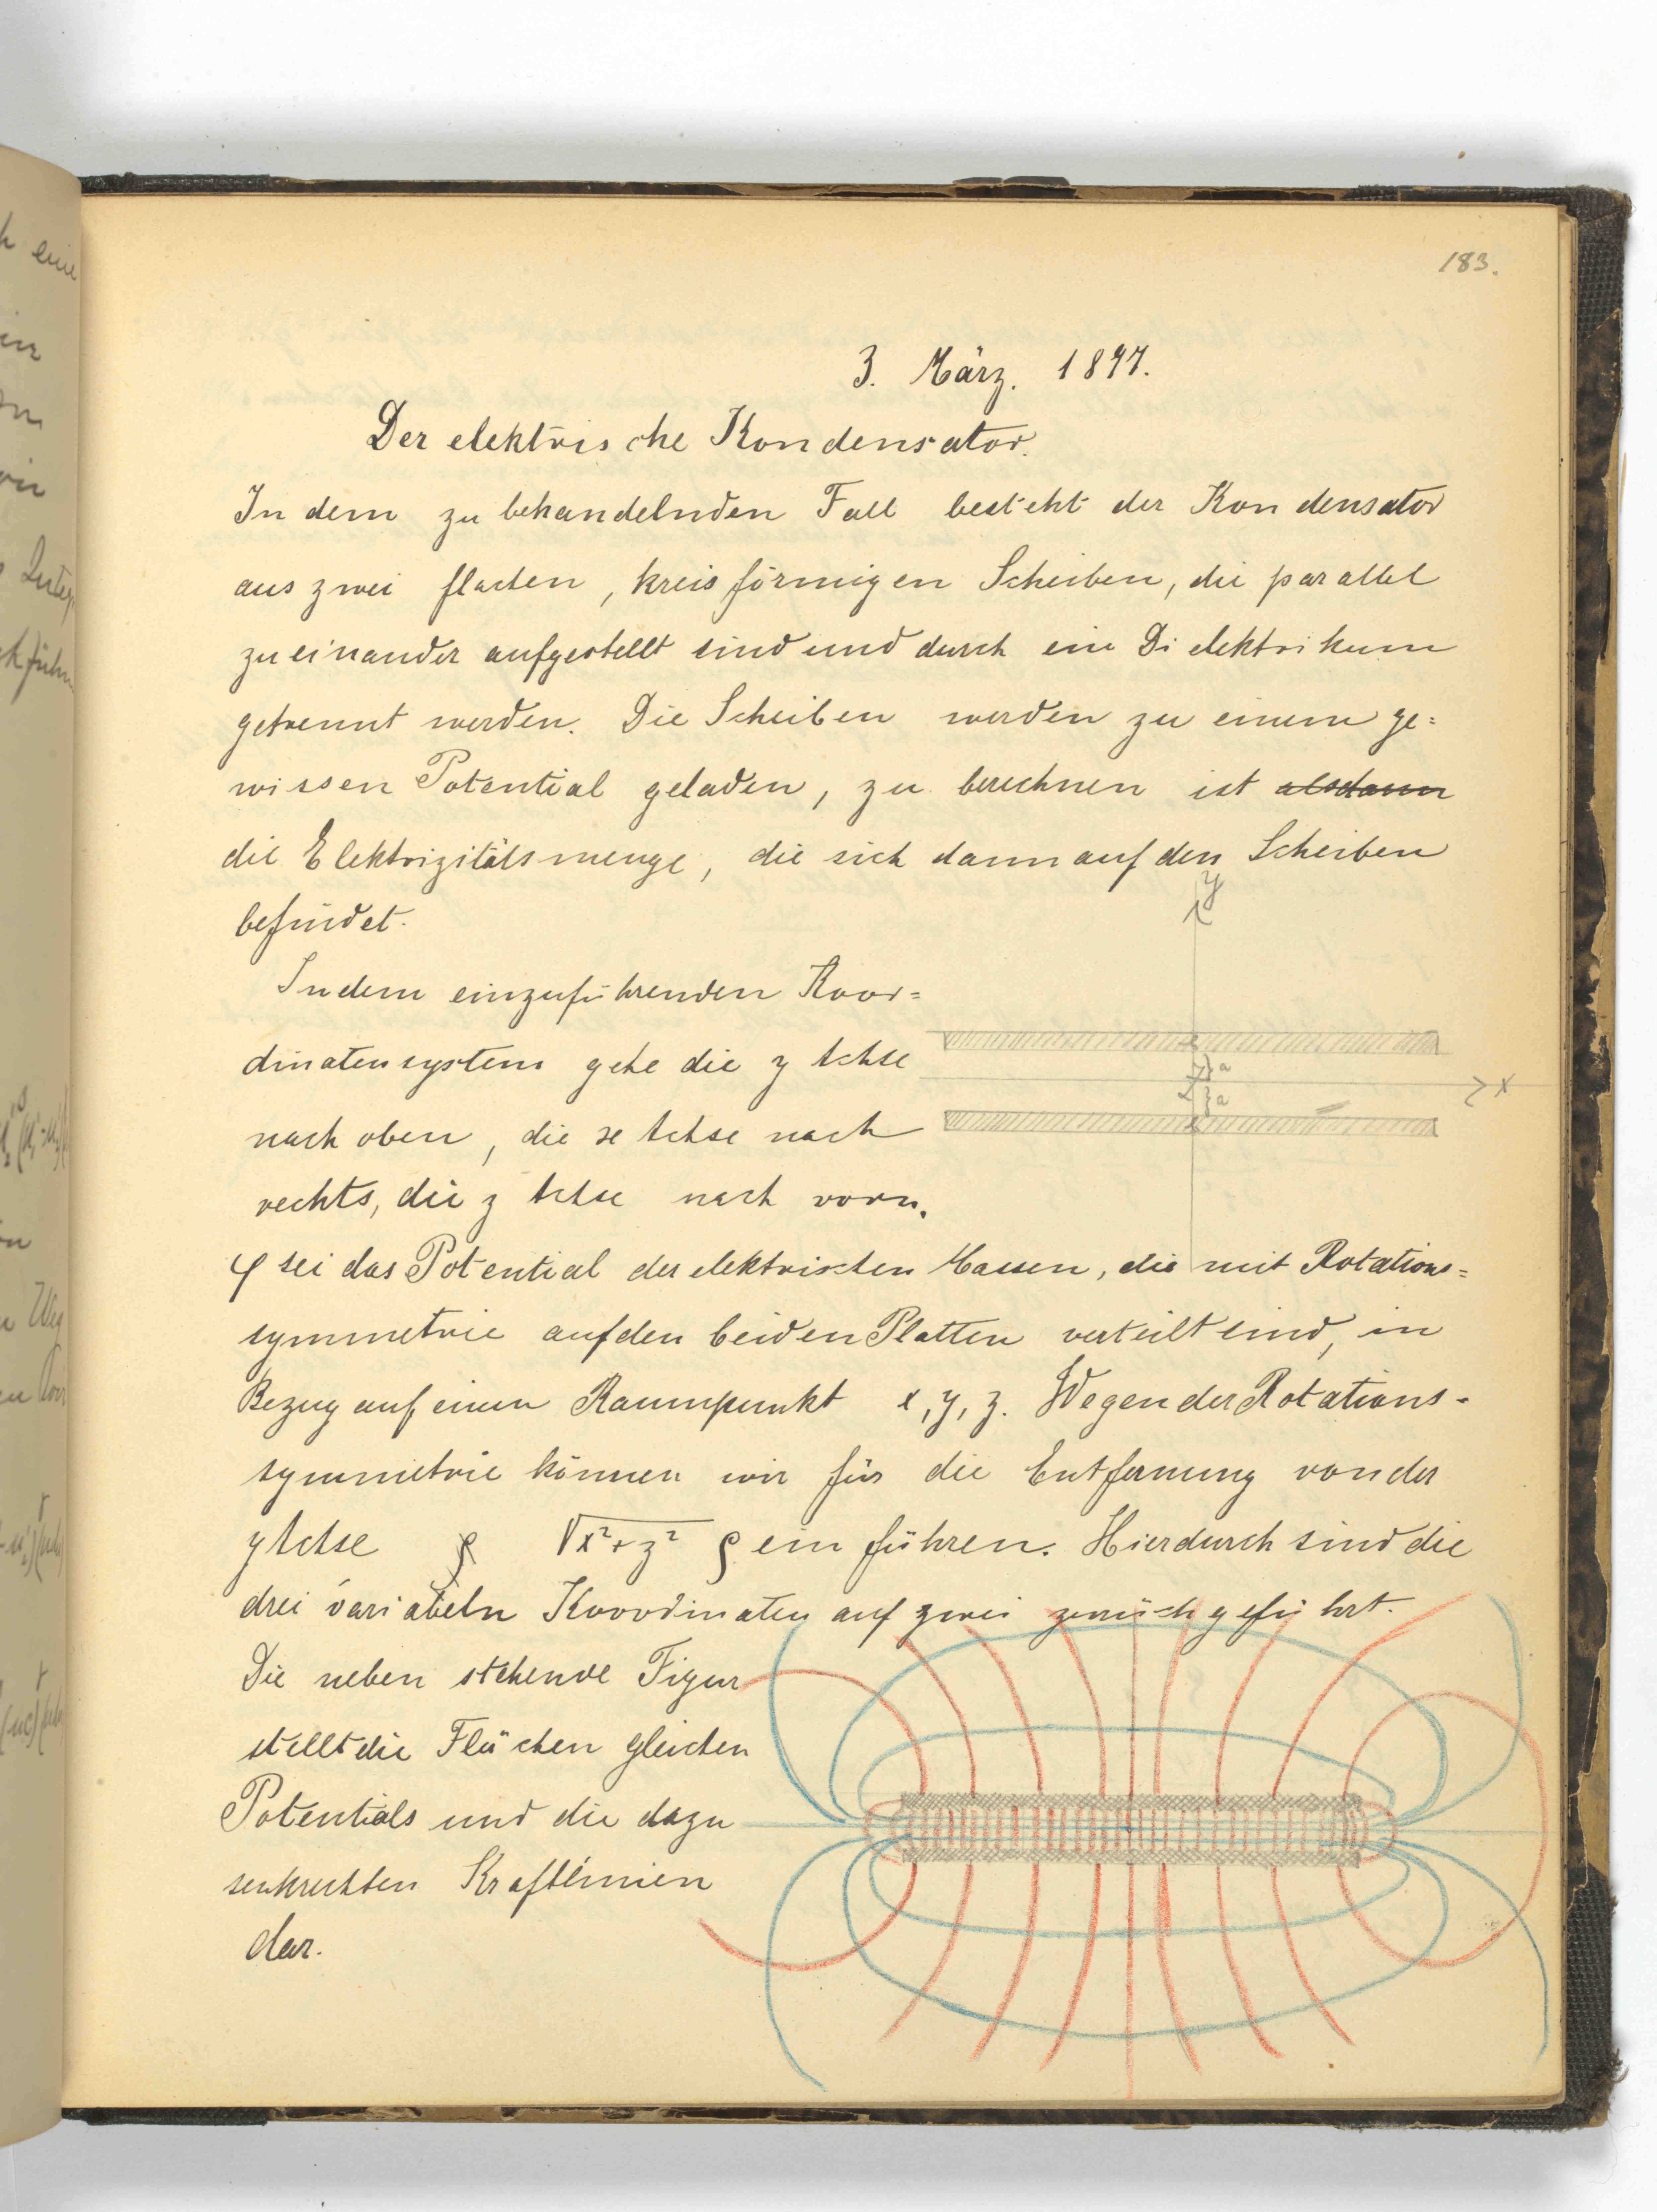 183.
3. März. 1897.
Der elektrische Kondensator.
In dem zu behandelnden Fall besteht der Kondensator
aus zwei flachen, kreisförmigen Scheiben, die parallel
zueinander aufgestellt sind und durch ein Dielektrikum
getrennt werden. Die Scheiben werden zu einem ge=
wissen Potential geladen, zu berechnen ist alsdann
die Elektrizitätsmenge, die sich dann auf den Scheiben
befindet.
In dem einzuführenden Koor=
dinatensystem gehe die y Achse
nach oben, die x Achse nach
rechts, die z Achse nach vorn.
y
a
a
x
φ sei das Potential der elektrischen Massen, die mit Rotations=
symmetrie auf den beiden Platten verteilt sind, in
Bezug auf einen Raumpunkt x, y, z. Wegen der Rotations-
symmetrie können wir für die Entfernung von der
y Achse √x²+z² ρ einführen. Hierdurch sind die
drei variabeln Koordinaten auf zwei zurückgeführt.
Die nebenstehende Figur
stellt die Flächen gleichen
Potentials und die dazu
senkrechten Kraftlinien
dar.
eine